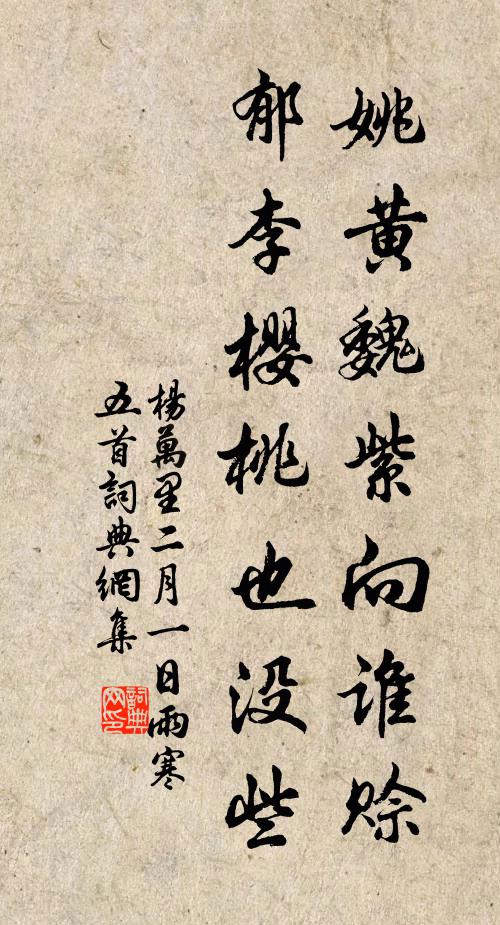 姚黄魏紫向谁赊
郁李櫻桃也没些
楊萬里二月一日雨寒
五首詞典網集
詞典
网印